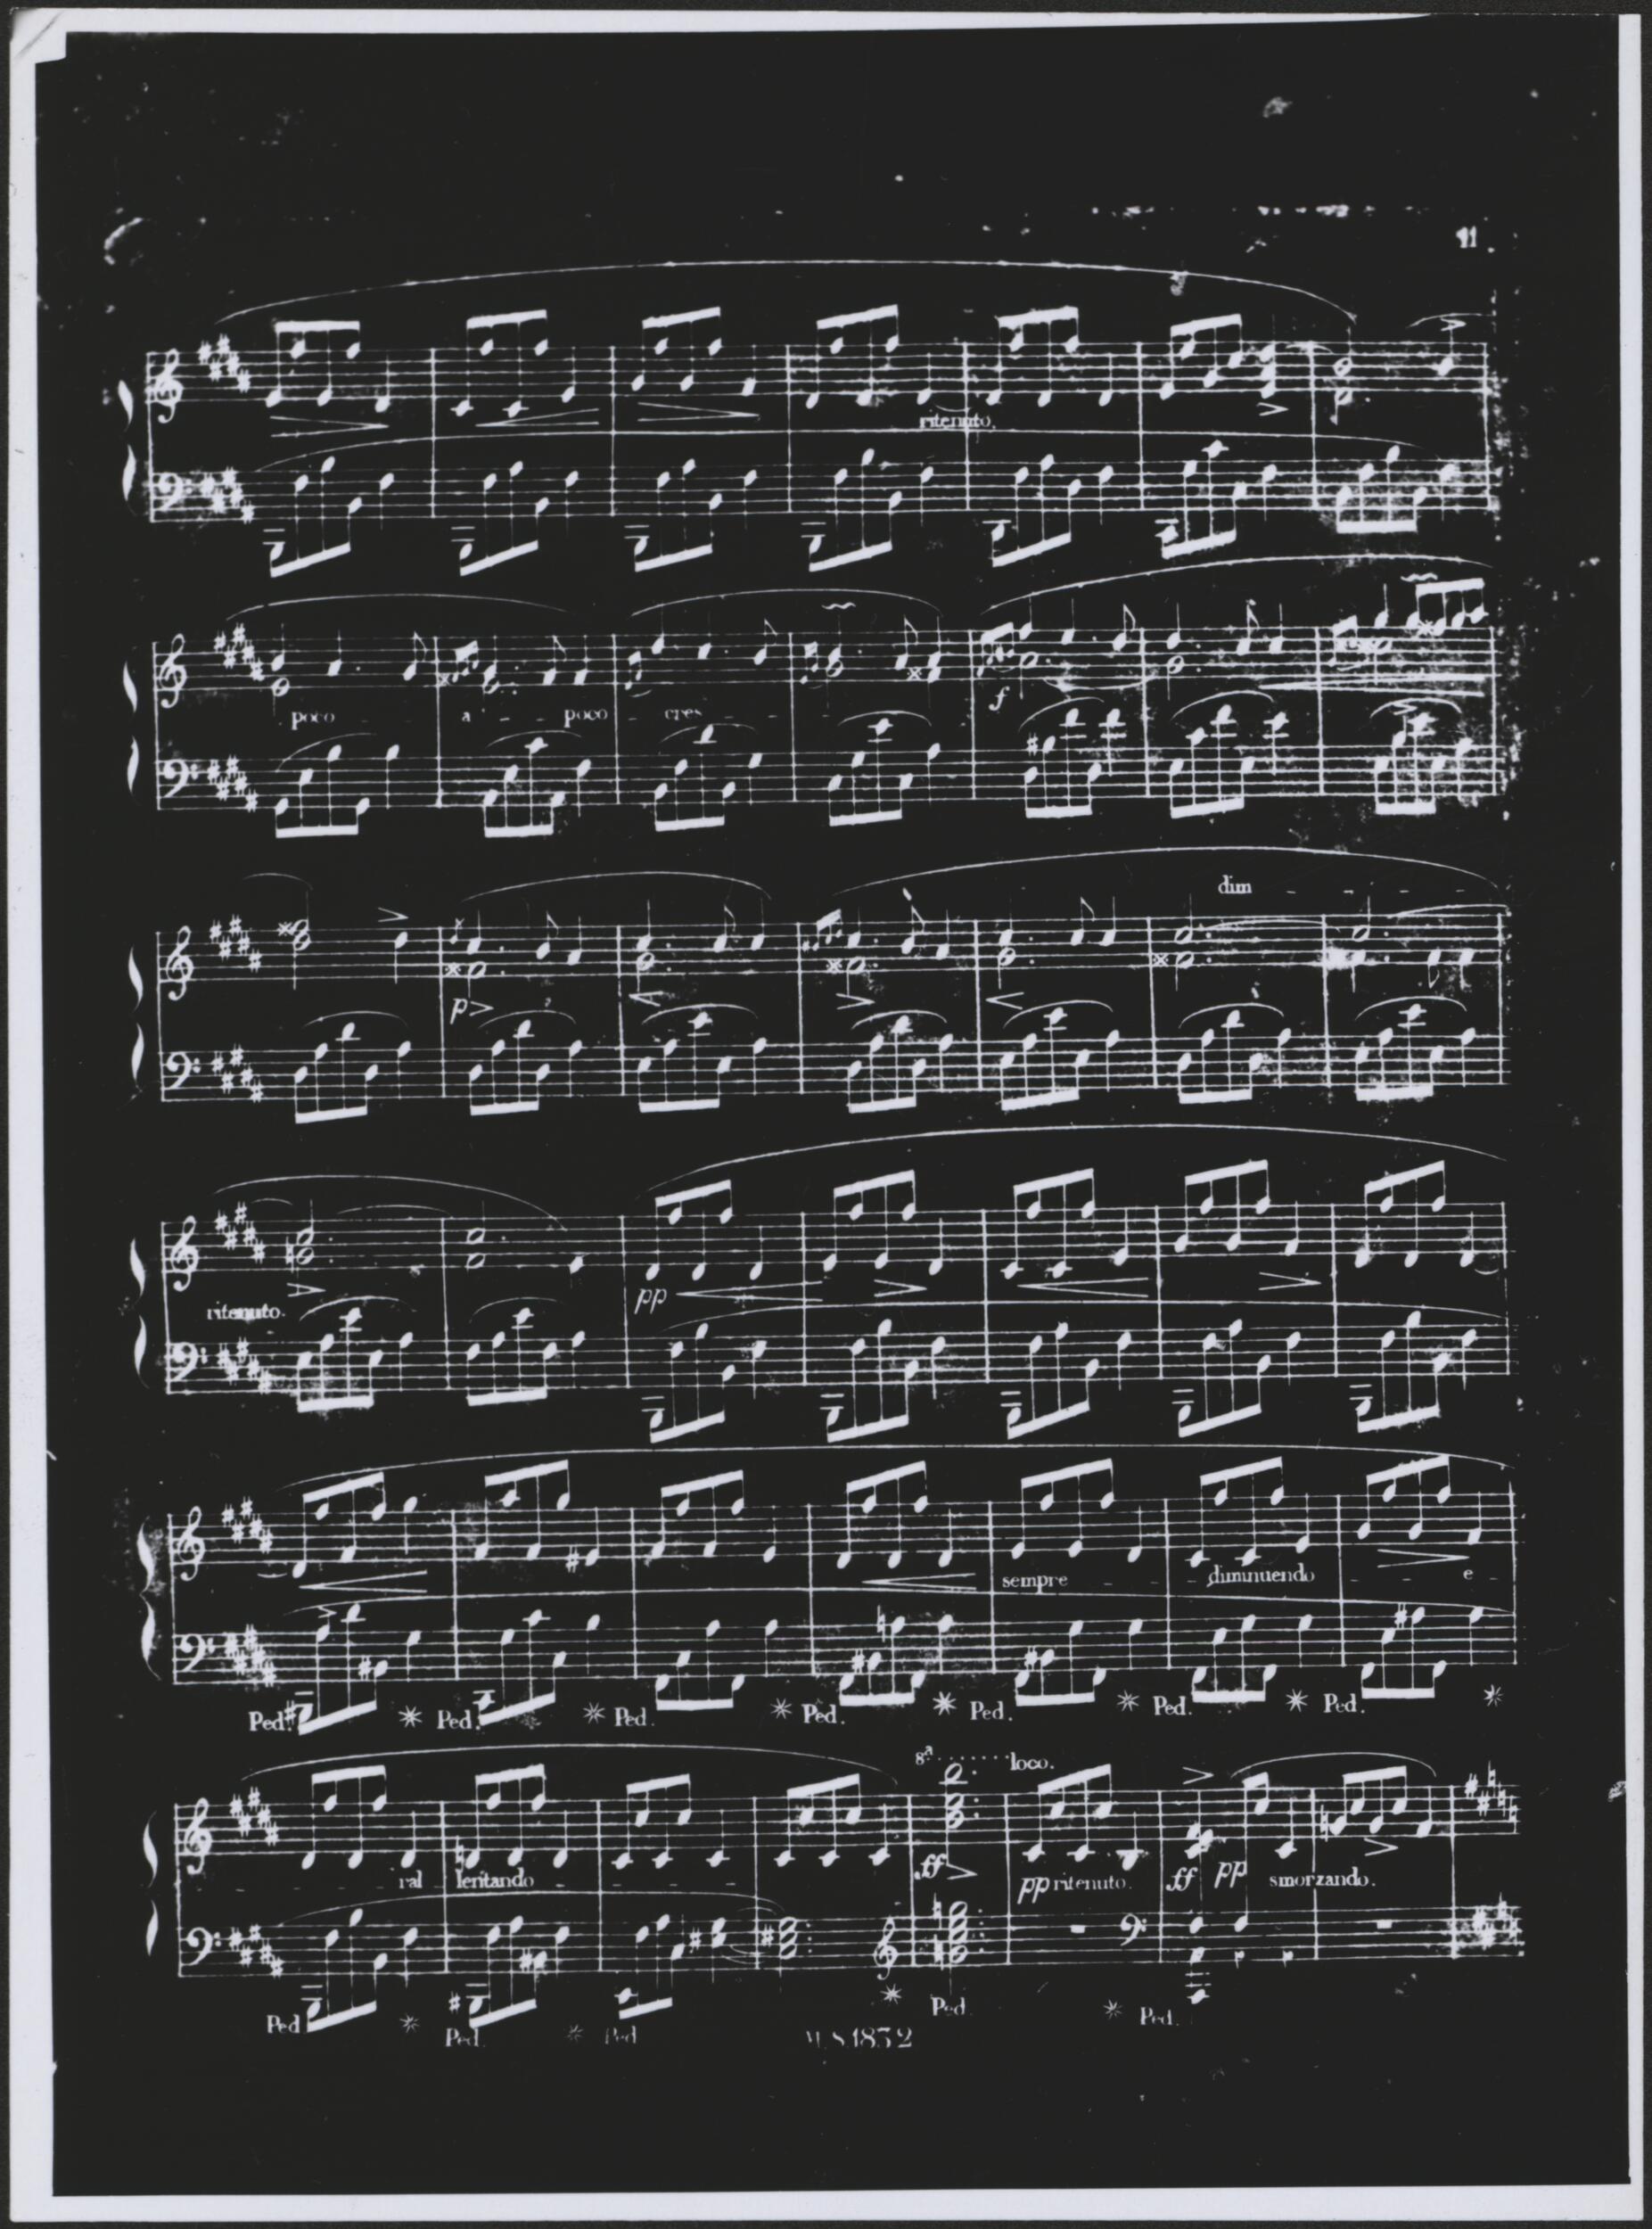 11
ritenuto.
poco a poco cres
f
dim
p
ritenuto.
pp
sempre diminuendo e
Ped. Ped. Ped. Ped. Ped. Ped. Ped.
8ª loco.
ral lentando ff pp ritenuto. ff pp smorzando.
Ped Ped. Ped Ped Ped.
M.S.1832